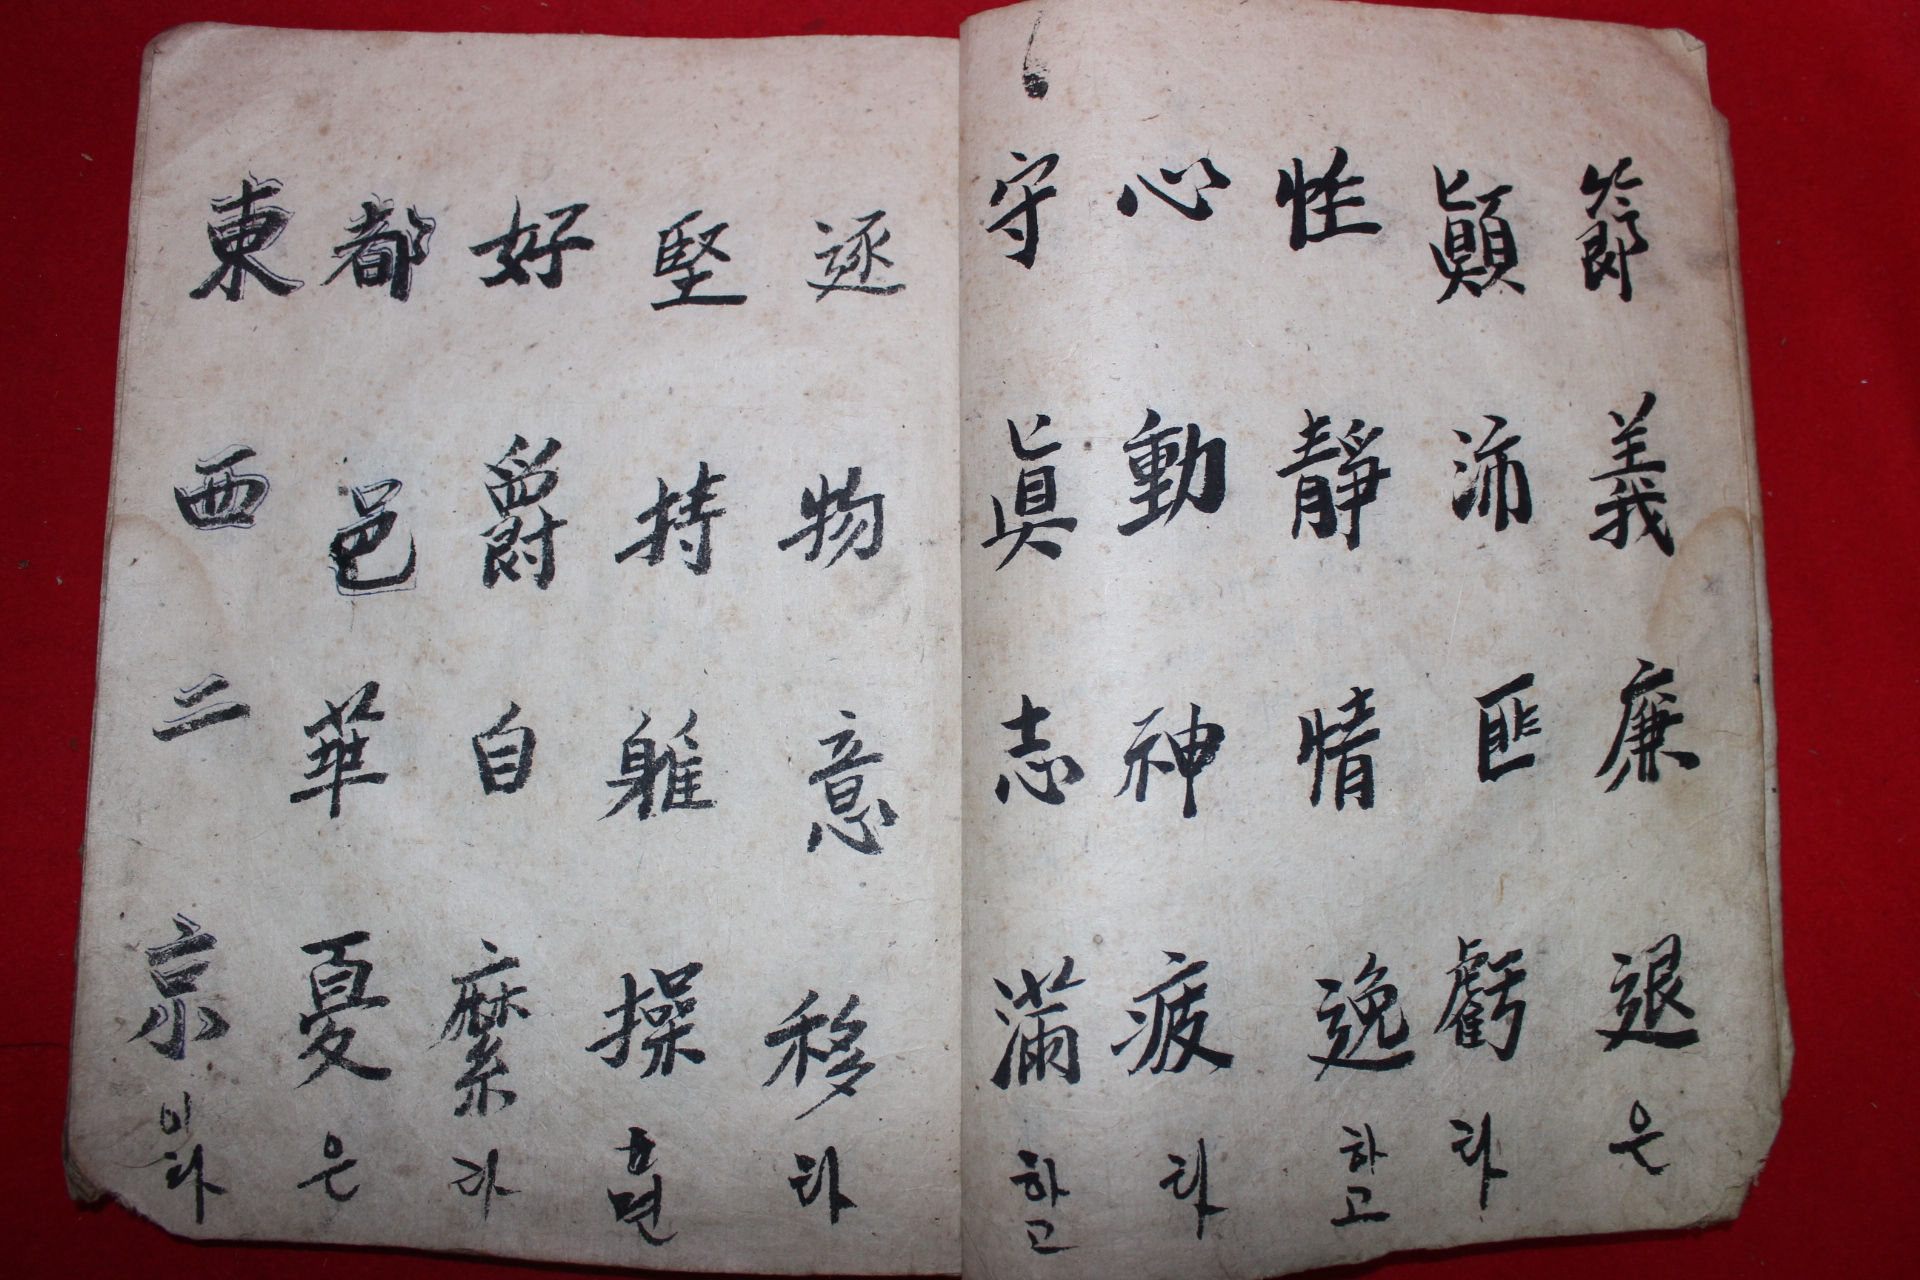 節義廉退은
顚沛匪虧라
性靜情逸하고
心動神疲라
守眞志滿하고
逐物意移라
堅持雅操면
好爵自縻라
都邑華夏은
東西二京이라